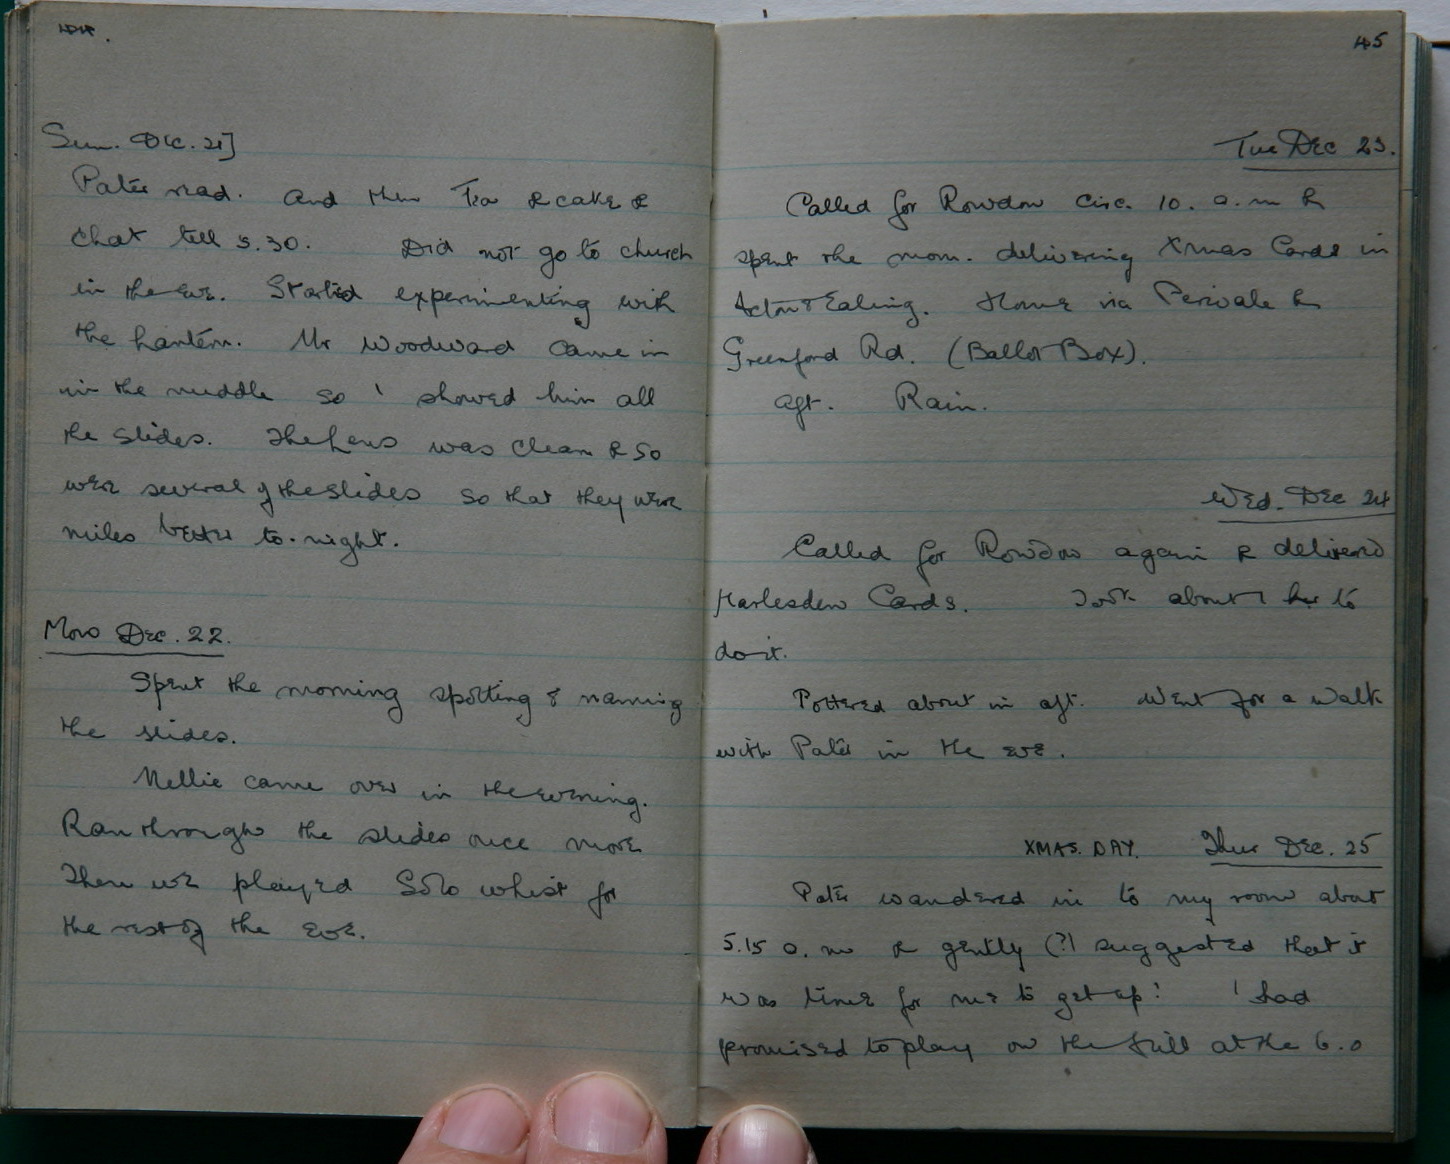 44.
Sun. Dec. 21]
Pater read. And then Tea & cake &
chat till 5.30. Did not go to church
in the eve. Started experimenting with
the lantern. Mr Woodward came in
in the middle so I showed him all
the slides. The Lens was clean & so
were several of the slides so that they were
miles better to-night.
Mon Dec. 22.
Spent the morning spotting & naming
the slides.
Nellie came over in the evening.
Ran through the slides once more
Then we played Solo whist for
the rest of the eve.
45
Tue Dec 23.
Called for Rowdon circ. 10. a.m &
spent the morn. delivering Xmas Cards in
Acton & Ealing. Home via Perivale &
Greenford Rd. (Ballot Box).
aft. Rain.
Wed. Dec 24
Called for Rowdon again & delivered
Harlesden Cards. Took about 1 hr to
do it.
Pottered about in aft. Went for a walk
with Pater in the eve.
XMAS. DAY. Thur Dec. 25
Pater wandered in to my room about
5.15 a.m & gently (?) suggested that it
was time for me to get up! I had
promised to play on the at the 6.0